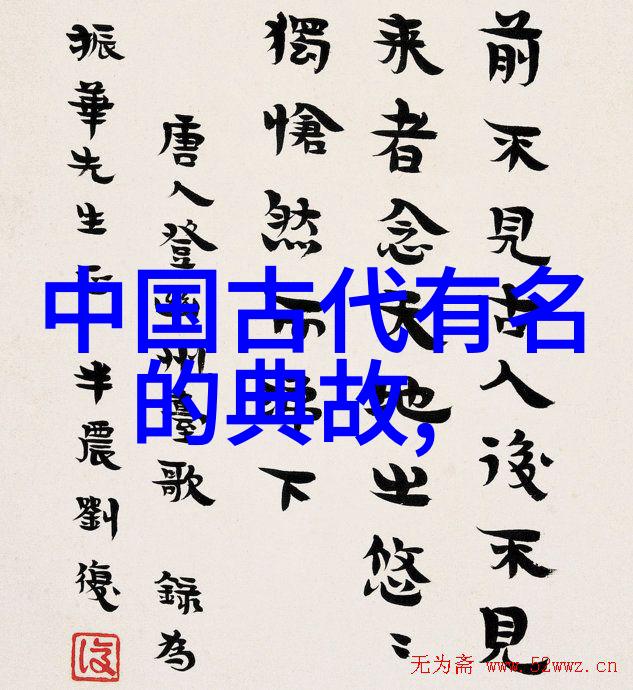 前不見古人後不見
来者念天地之悠〻
獨愴然而涕下
唐人登幽州臺歌 錄為
振華先生 半農劉復
復
中国古代有名
的典故,
无为斋 www.52wwz.cn